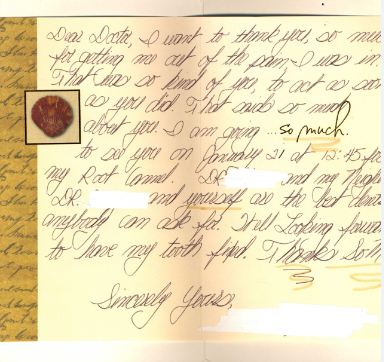 Dear Doctor, I want to thank you, so muc
for getting me out of the pain, I was in.
That was so kind of you, to act as soo
as you did. That said so much
about you. I am going ... so much.
to see you on January 21 at 12:45 fo
my Root Cannel. DR. and my
DR. and yourself are the best
anybody can ask for. Still Looking forwar
to have my tooth fixed. Thanks So M
Sincerely Yours,